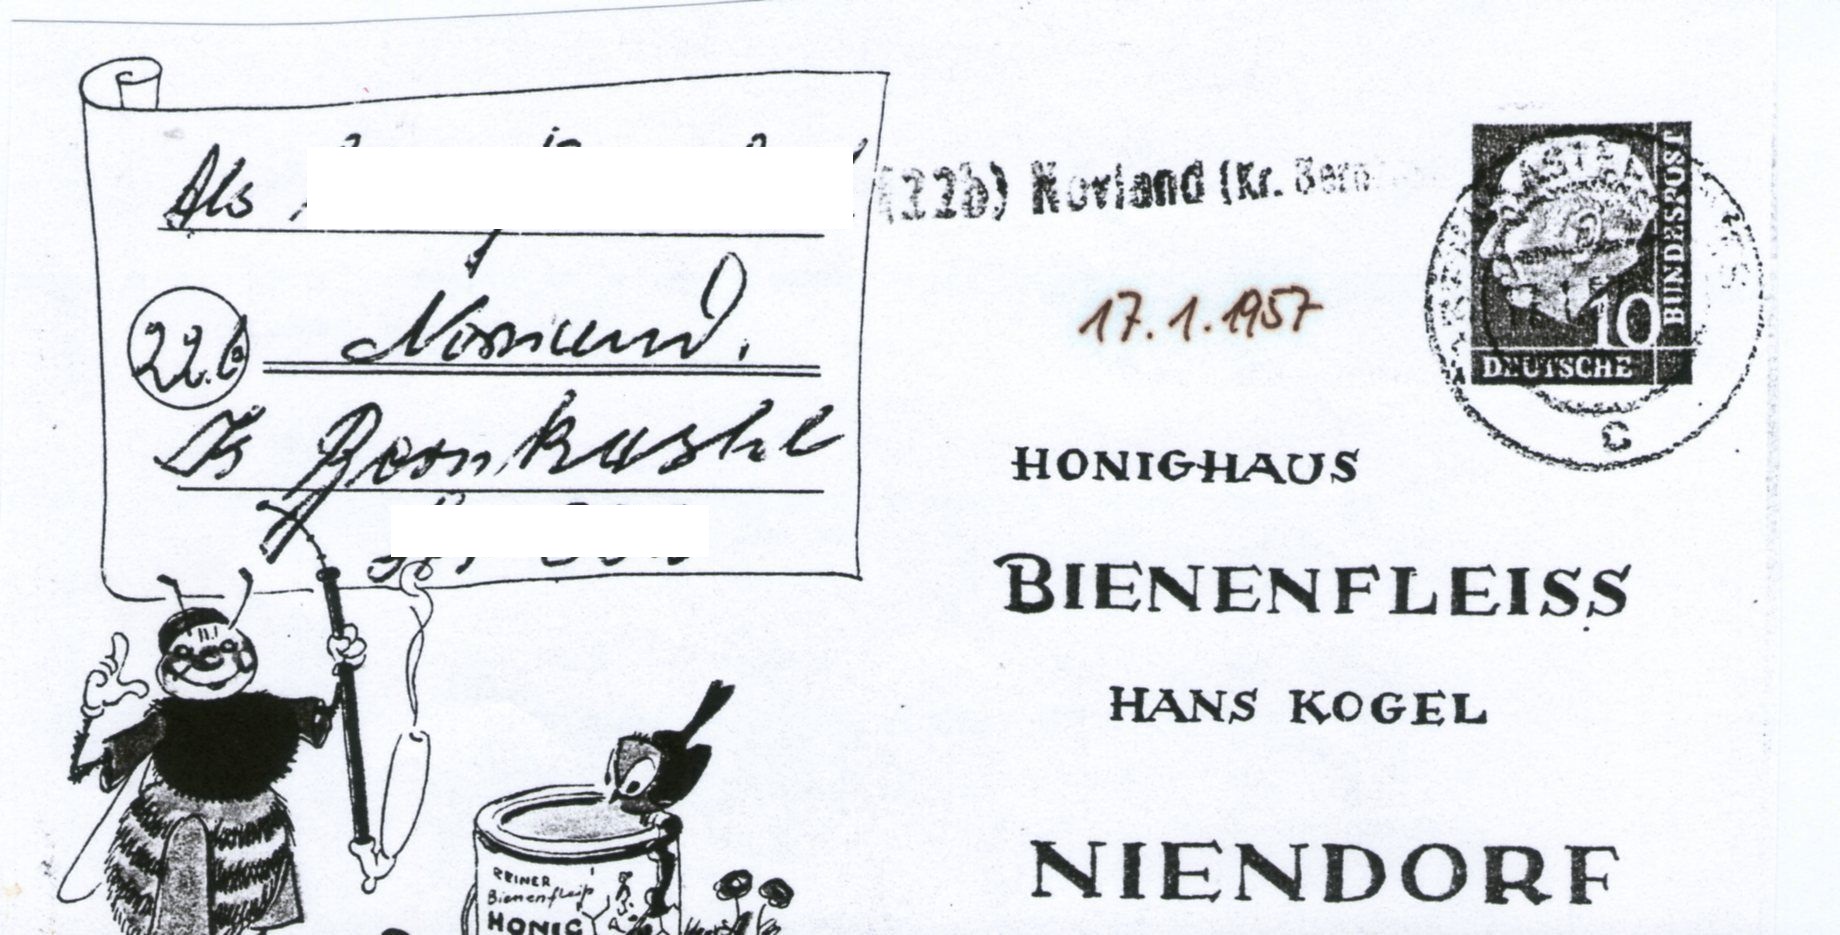 Als
(22b) Noviand (Kr. Bern
22b Noviand.
17.1.1957
Kr Bernkastel
10
BUNDESPOST
DEUTSCHE
C
HONIGHAUS
BIENENFLEISS
HANS KOGEL
NIENDORF
REINER
Bienenfleiß
HONIG